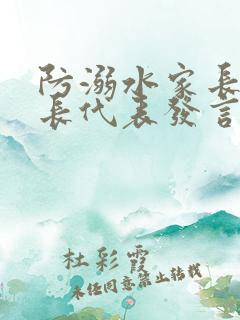 防溺水家長
長代表發言
杜彩霞
未经同意禁止转载